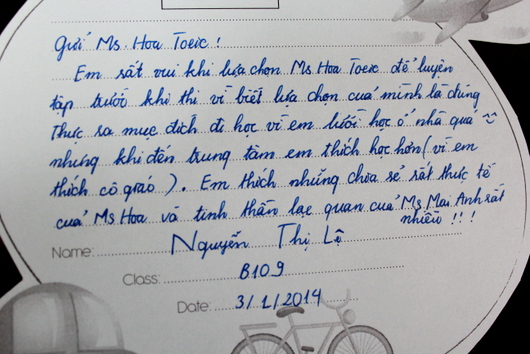 Gửi Ms Hoa Toeic !
Em rất vui khi lựa chọn Ms Hoa Toeic để luyện
tập trước khi thi vì biết lựa chọn của mình là đúng
Thực ra mục đích đi học vì em lười học ở nhà quá
nhưng khi đến trung tâm em thích học hơn (vì em
thích cô giáo ). Em thích những chia sẻ rất thực tế
của Ms Hoa và tinh thần lạc quan của Ms Mai Anh rất
nhiều !!!
Name: Nguyễn Thị Lệ
Class: B109
Date: 3/1/2014